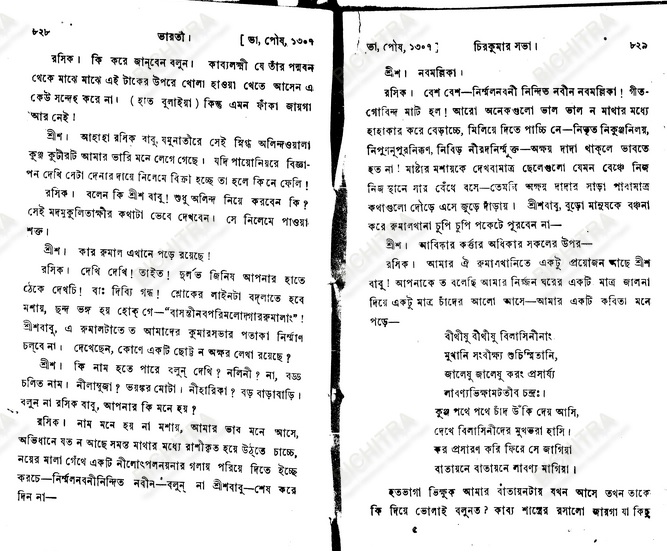 ৮২৮ ভারতী। [ ভা, পৌষ, ১৩০৭
রসিক। কি করে জান্‌বেন বলুন। কাব্যলক্ষ্মী যে তাঁর পদ্মবন
থেকে মাঝে মাঝে এই টাকের উপরে খোলা হাওয়া খেতে আসেন এ
কেউ সন্দেহ করে না। (হাত বুলাইয়া) কিন্তু এমন ফাঁকা জায়গা
আর নেই!
শ্রীশ। আহাহা রসিক বাবু, যমুনাতীরে সেই স্নিগ্ধ অলিন্দওয়ালা
কুঞ্জ কুটীরটি আমার ভারি মনে লেগে গেছে। যদি পায়োনিয়রে বিজ্ঞা-
পন দেখি সেটা দেনার দায়ে নিলেমে বিক্রী হচ্ছে তা হলে কিনে ফেলি!
রসিক। বলেন কি শ্রীশ বাবু! শুধু অলিন্দ নিয়ে করবেন কি?
সেই মদমুকুলিতাক্ষীর কথাটা ভেবে দেখবেন। সে নিলেমে পাওয়া
শক্ত।
শ্রীশ। কার রুমাল এখানে পড়ে রয়েছে!
রসিক। দেখি দেখি! তাইত! দুর্লভ জিনিষ আপনার হাতে
ঠেকে দেখচি! বাঃ দিব্যি গন্ধ! শ্লোকের লাইনটা বদ্‌লাতে হবে
মশায়, ছন্দ ভঙ্গ হয় হোক্ গে—“বাসন্তীনবপরিমলোদ্গাররুমালাং”!
শ্রীশবাবু, এ রুমালটাতে ত আমাদের কুমারসভার পতাকা নির্ম্মাণ
চল্‌বে না। দেখেছেন, কোণে একটি ছোট্ট ন অক্ষর লেখা রয়েছে?
শ্রীশ। কি নাম হতে পারে বলুন্ দেখি? নলিনী? না, বড্ড
চলিত নাম। নীলাম্বুজা? ভয়ঙ্কর মোটা। নীহারিকা? বড় বাড়াবাড়ি।
বলুন না রসিক বাবু, আপনার কি মনে হয়?
রসিক। নাম মনে হয় না মশায়, আমার ভাব মনে আসে,
অভিধানে যত ন আছে সমস্ত মাথার মধ্যে রাশীকৃত হয়ে উঠ্‌তে চাচ্চে,
নয়ের মালা গেঁথে একটি নীলোৎপলনয়নার গলায় পরিয়ে দিতে ইচ্ছে
করচে—নির্ম্মলনবনীনিন্দিত নবীন—বলুন্ না শ্রীশবাবু—শেষ করে
দিন না—
ভা, পৌষ, ১৩০৭ ] চিরকুমার সভা। ৮২৯
শ্রীশ। নবমল্লিকা।
রসিক। বেশ বেশ—নির্ম্মলনবনী নিন্দিত নবীন নবমল্লিকা! গীত-
গোবিন্দ মাটি হল! আরো অনেকগুলো ভাল ভাল ন মাথার মধ্যে
হাহাকার করে বেড়াচ্চে, মিলিয়ে দিতে পাচ্চি নে—নিভৃত নিকুঞ্জনিলয়,
নিপুণনূপুরনিক্বণ, নিবিড় নীরদনির্ম্মুক্ত—অক্ষয় দাদা থাক্‌লে ভাবতে
হত না! মাষ্টার মশায়কে দেখবামাত্র ছেলেগুলো যেমন বেঞ্চে নিজ
নিজ স্থানে সার বেঁধে বসে—তেমনি অক্ষয় দাদার সাড়া পাবামাত্র
কথাগুলো দৌড়ে এসে জুড়ে দাঁড়ায়। শ্রীশবাবু, বুড়ো মানুষকে বঞ্চনা
করে রুমালখানা চুপি চুপি পকেটে পূরবেন না—
শ্রীশ। আবিষ্কার কর্ত্তার অধিকার সকলের উপর—
রসিক। আমার ঐ রুমালখানিতে একটু প্রয়োজন আছে শ্রীশ
বাবু! আপনাকে ত বলেছি আমার নির্জ্জন ঘরের একটি মাত্র জালনা
দিয়ে একটু মাত্র চাঁদের আলো আসে—আমার একটি কবিতা মনে
পড়ে—
বীথীষু বীথীষু বিলাসিনীনাং
মুখানি সংবীক্ষ্য শুচিস্মিতানি,
জালেষু জালেষু করং প্রসার্য্য
লাবণ্যভিক্ষামটতীব চন্দ্রঃ।
কুঞ্জ পথে পথে চাঁদ উঁকি দেয় আসি,
দেখে বিলাসিনীদের মুখভরা হাসি।
কর প্রসারণ করি ফিরে সে জাগিয়া
বাতায়নে বাতায়নে লাবণ্য মাগিয়া।
হতভাগা ভিক্ষুক আমার বাতায়নটায় যখন আসে তখন তাকে
কি দিয়ে ভোলাই বলুনত? কাব্য শাস্ত্রের রসালো জায়গা যা কিছু
৫
BICHITRA